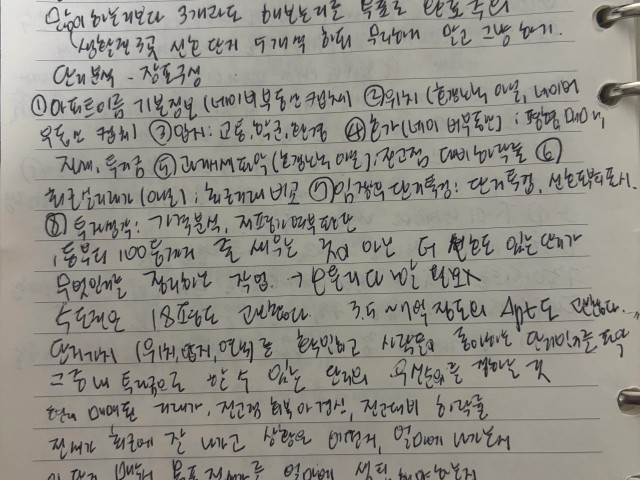 많이 하는거보다 3개라도 해보는거를 목표로
생활권 3곳 선호 단지 5개씩 하되 무리하게 말고 그냥 하기.
단지분석 - 장표구성
①아파트이름 기본정보 (네이버부동산 캡쳐) ②위치 (호갱노노, 아실, 네이버
부동산 캡쳐) ③입지: 교통, 학군, 환경 ④호가(네이버부동산) : 평형, 매매,
전세, 투자금 ⑤과거시세파악 (호갱노노, 아실); 전고점 대비 하락률 ⑥
최근실거래가 (아실) ; 최근거래 비교 ⑦임장후 단지특징: 단지특징, 선호도부터표시.
⑧투자생각: 가격분석, 저평가여부판단
1등부터 100등까지 줄 세우는 것이 아닌 더 선호도 있는 단지가
무엇인지를 정리하는 작업. →
수도권은 18평도 괜찮다. 3.5~4억 정도의 Apt도 괜찮다.
단지가치 (위치,입지,연식)를 확인하고 사람들이 좋아하는 단지인지를 파악
그중 내 투자금으로 할 수 있는 단지의 우선순위를 정하는 것
현재 매매된 거래가, 전고점 회복 아경싱, 전고대비 하락률
전세가 최근에 잘 나가고 상황은 어떤지, 얼마에 나가는지